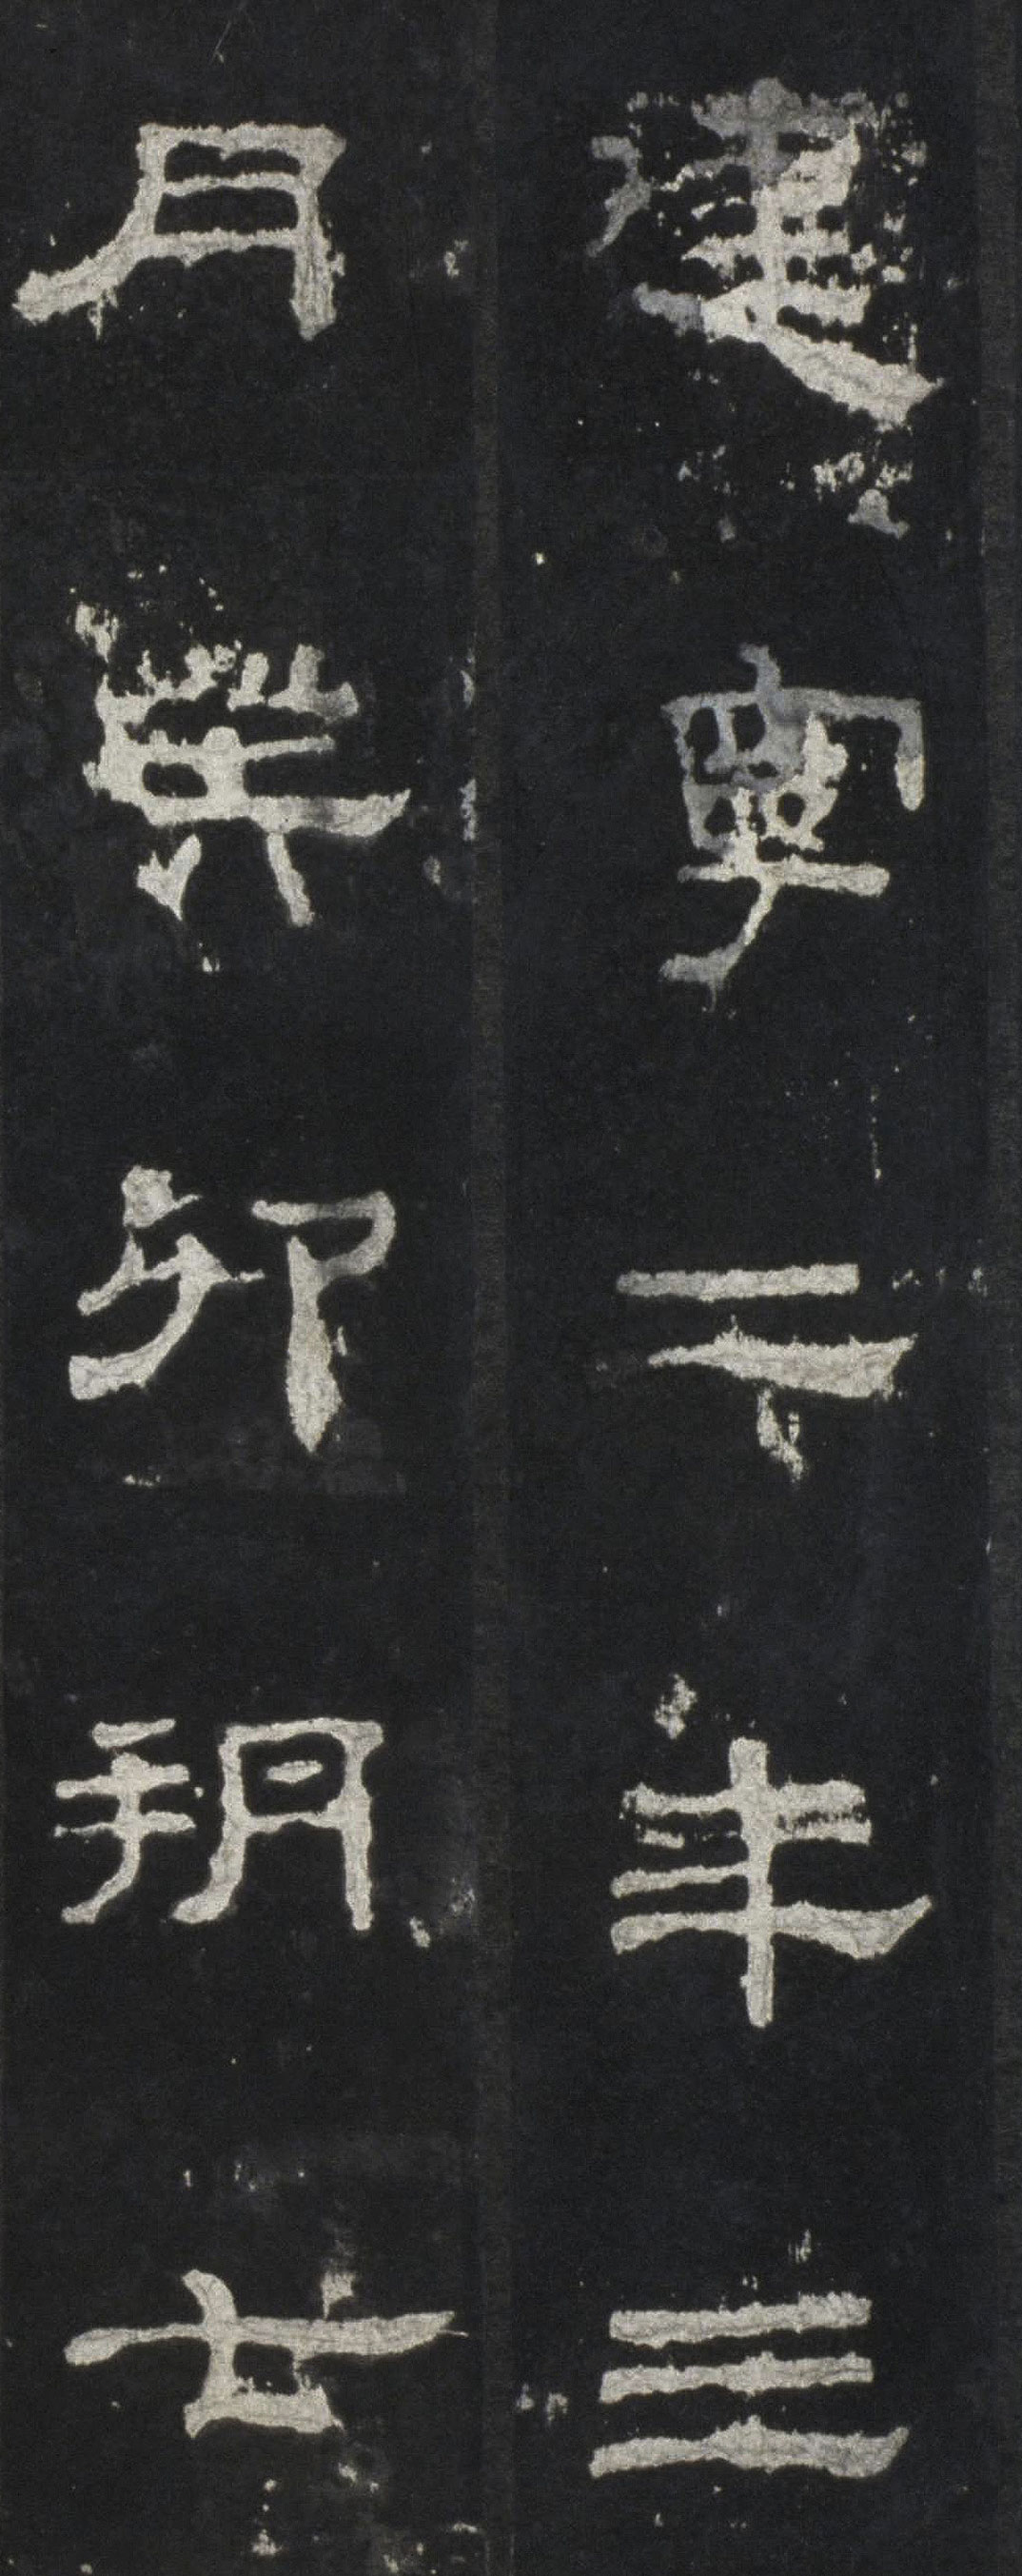 建寧二年三
月癸卯朔廿